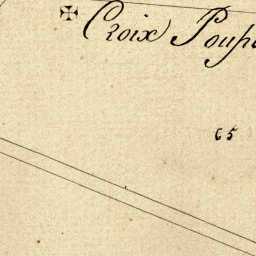 Croix Poupé
65